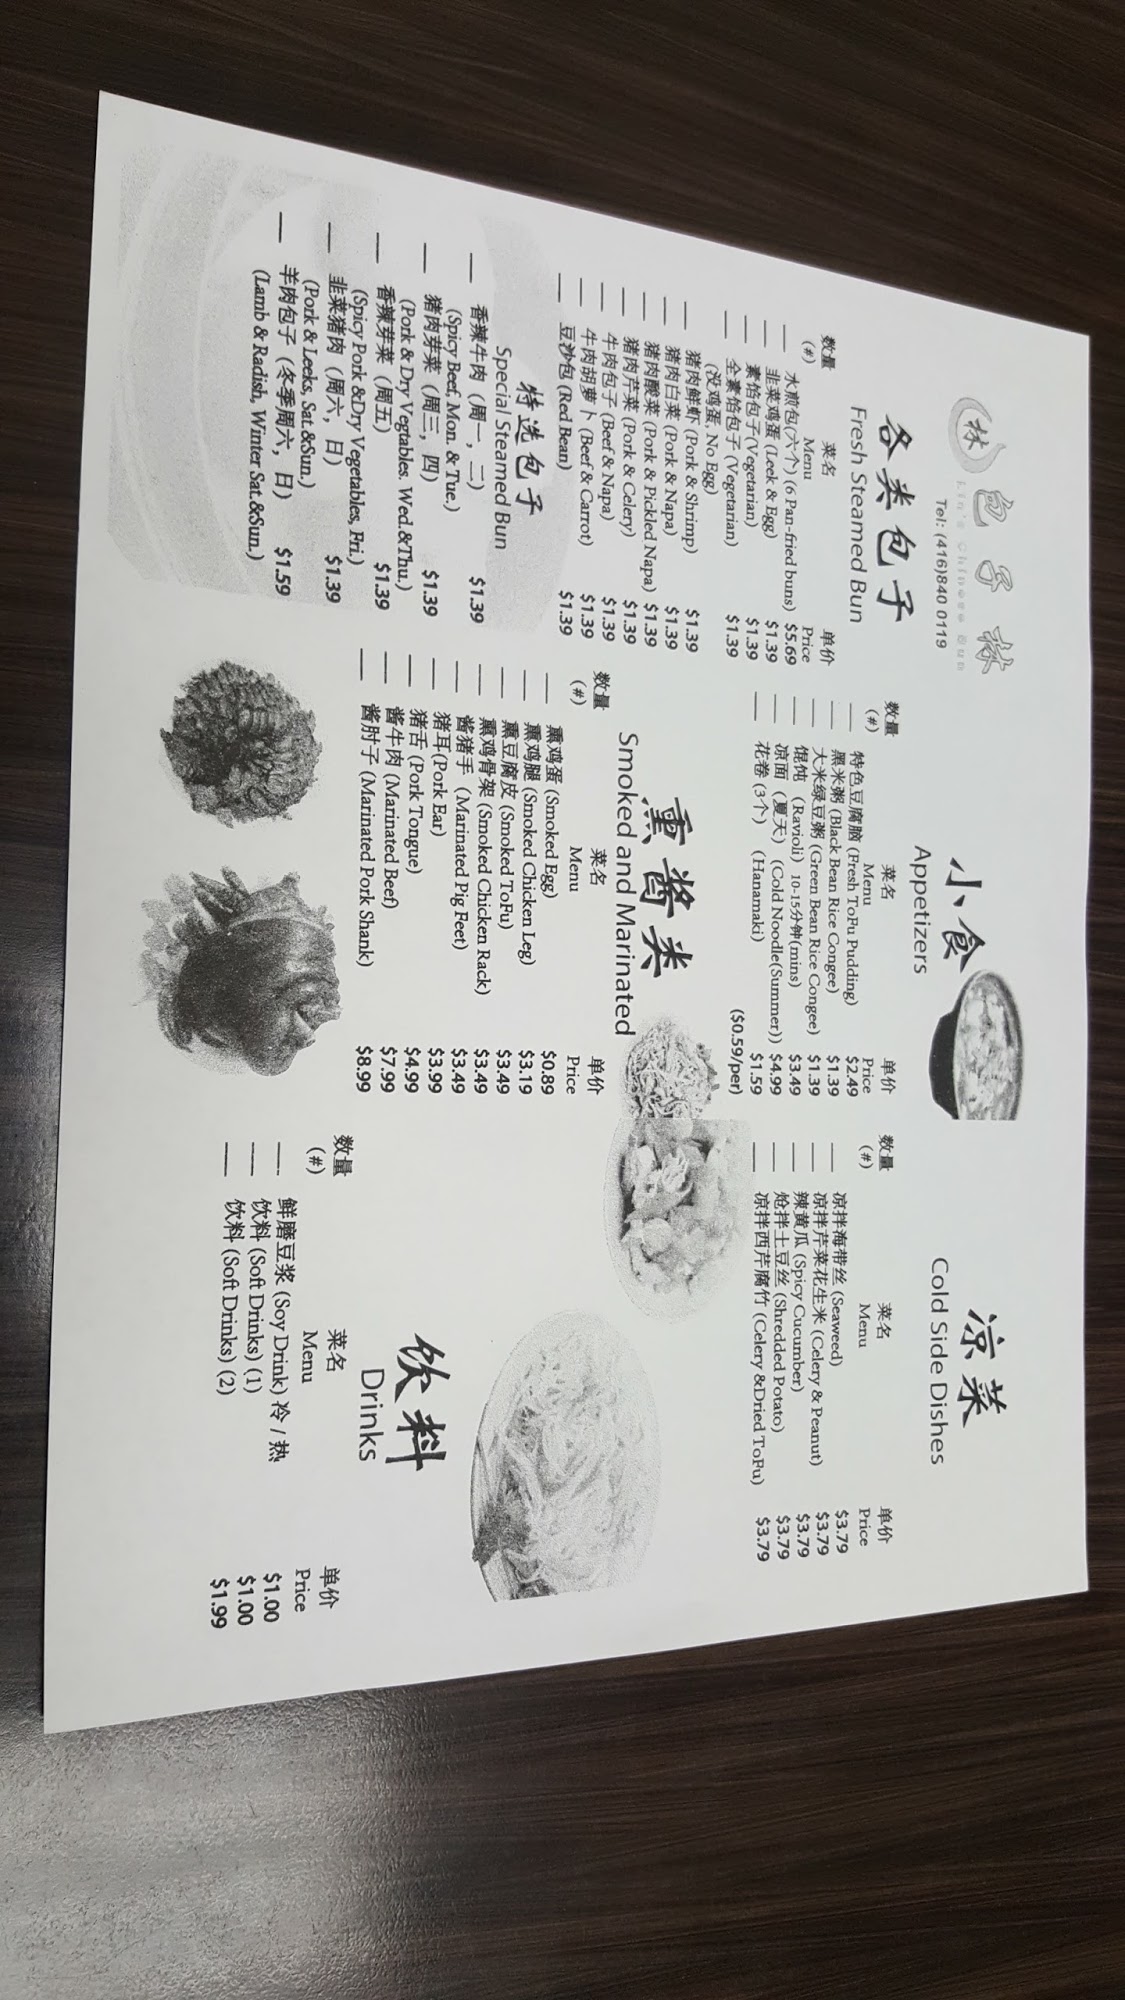 林 包子林
Lin's Chinese Bun
Tel: (416)840 0119
各类包子
Fresh Steamed Bun
数量 菜名 单价
(#) Menu Price
水煎包(六个) (6 Pan-fried buns) $5.69
韭菜鸡蛋 (Leek & Egg) $1.39
素馅包子(Vegetarian) $1.39
全素馅包子 (Vegetarian) $1.39
(没鸡蛋, No Egg)
猪肉鲜虾 (Pork & Shrimp) $1.39
猪肉白菜 (Pork & Napa) $1.39
猪肉酸菜 (Pork & Pickled Napa) $1.39
猪肉芹菜 (Pork & Celery) $1.39
牛肉包子 (Beef & Napa) $1.39
牛肉胡萝卜 (Beef & Carrot) $1.39
豆沙包 (Red Bean) $1.39
特选包子
Special Steamed Bun
香辣牛肉 (周一, 二) $1.39
(Spicy Beef. Mon. & Tue.)
猪肉芽菜 (周三, 四) $1.39
(Pork & Dry Vegtables. Wed.&Thu.)
香辣芽菜 (周五) $1.39
(Spicy Pork &Dry Vegetables, Fri.)
韭菜猪肉 (周六, 日) $1.39
(Pork & Leeks, Sat.&Sun.)
羊肉包子 (冬季周六, 日) $1.59
(Lamb & Radish, Winter Sat.&Sun.)
小食
Appetizers
数量 菜名 单价
(#) Menu Price
特色豆腐脑 (Fresh ToFu Pudding) $2.49
黑米粥 (Black Bean Rice Congee) $1.39
大米绿豆粥 (Green Bean Rice Congee) $1.39
馄饨 (Ravioli) 10-15分钟(mins) $3.49
凉面 (夏天) (Cold Noodle(Summer)) $4.99
花卷 (3个) (Hanamaki) $1.59
($0.59/per)
熏酱类
Smoked and Marinated
数量 菜名 单价
(#) Menu Price
熏鸡蛋 (Smoked Egg) $0.89
熏鸡腿 (Smoked Chicken Leg) $3.19
熏豆腐皮 (Smoked ToFu) $3.49
熏鸡骨架 (Smoked Chicken Rack) $3.49
酱猪手 (Marinated Pig Feet) $3.49
猪耳 (Pork Ear) $3.99
猪舌 (Pork Tongue) $4.99
酱牛肉 (Marinated Beef) $7.99
酱肘子 (Marinated Pork Shank) $8.99
凉菜
Cold Side Dishes
数量 菜名 单价
(#) Menu Price
凉拌海带丝 (Seaweed) $3.79
凉拌芹菜花生米 (Celery & Peanut) $3.79
辣黄瓜 (Spicy Cucumber) $3.79
炝拌土豆丝 (Shredded Potato) $3.79
凉拌西芹腐竹 (Celery &Dried ToFu) $3.79
饮料
Drinks
数量 菜名 单价
(#) Menu Price
鲜磨豆浆 (Soy Drink) 冷 / 热 $1.00
饮料 (Soft Drinks) (1) $1.00
饮料 (Soft Drinks) (2) $1.99